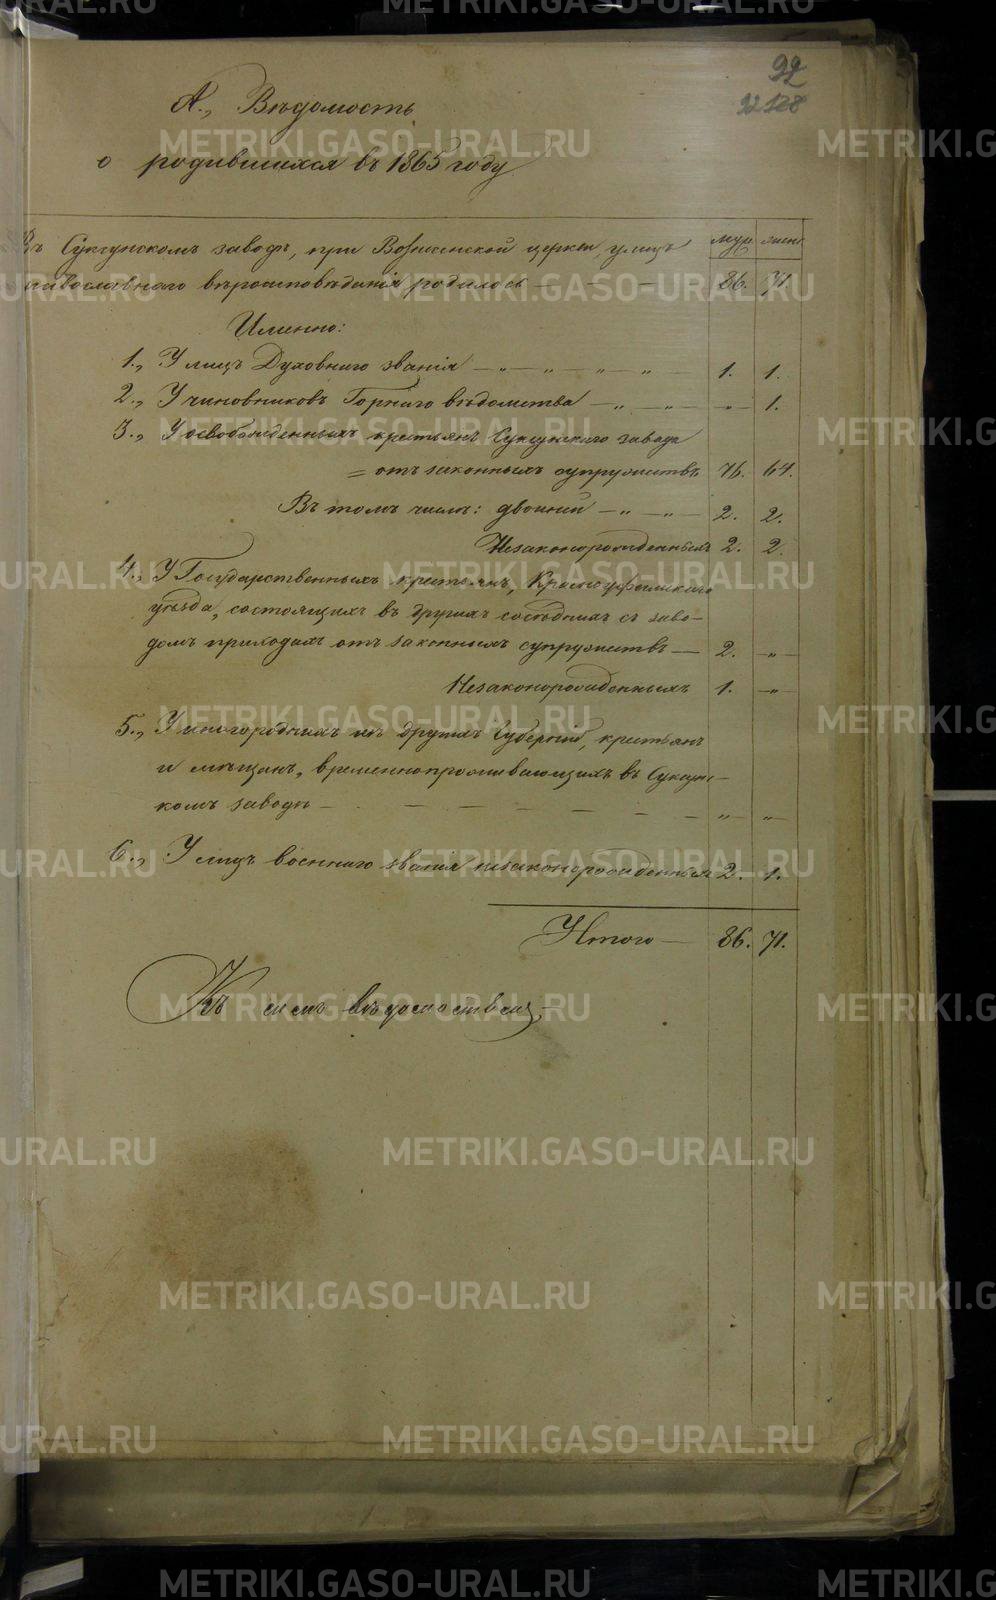 92
92 128
А., Вѣдомость
о родившихся въ 1865 году
Въ Суксунскомъ заводѣ, при Вознесенской церкви, у лицъ муж. жен.
православнаго вѣроисповѣданія родилось — — — 86. 71.
Именно:
1., У лицъ Духовнаго званія — „ — „ — „ — „ — 1. 1.
2., У чиновниковъ Горнаго вѣдомства — „ — „ — „ 1.
3., У освобожденныхъ крестьянъ Суксунскаго завода
= отъ законныхъ супружествъ 76. 64.
Въ томъ числѣ: двойни — „ — „ — 2. 2.
Незаконорожденныхъ 2. 2.
4., У Государственныхъ крестьянъ, Красноуфимскаго
уѣзда, состоящихъ въ другихъ сосѣднихъ съ заво-
домъ приходахъ отъ законныхъ супружествъ — 2. — „ —
Незаконорожденныхъ 1. — „ —
5., У иногородныхъ изъ другихъ Губерній, крестьянъ
и мѣщанъ, временнопроживающихъ въ Суксун-
комъ заводѣ — — — — — — „ — „ —
6., У лицъ военнаго званія незаконорожденныхъ 2. 1.
Итого — 86. 71.
Къ симъ вѣдомостямъ
METRIKI.GASO-URAL.RU